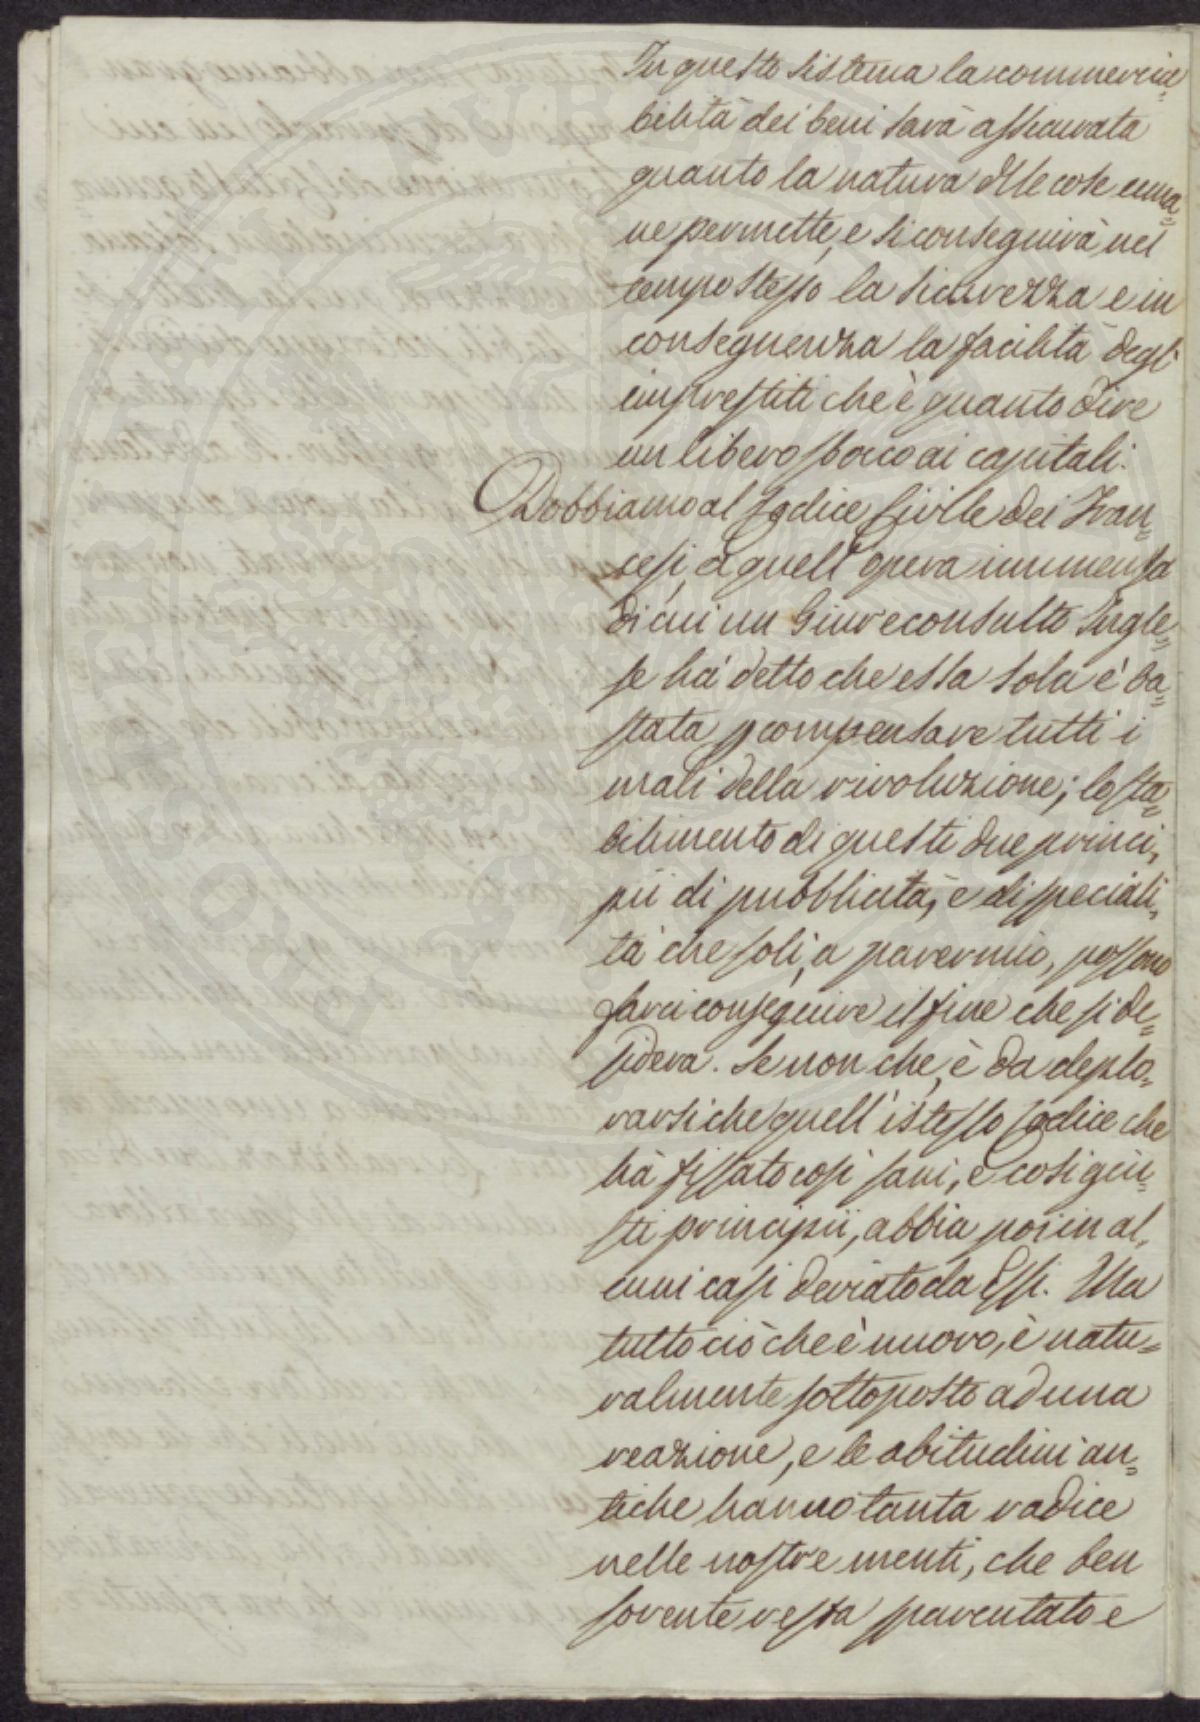 In questo sistema la commercia=
bilità dei beni sarà assicurata
quanto la natura delle cose uma=
ne permette, e si conseguirà nel
tempo stesso la sicurezza e in
conseguenza la facilità degl'
imprestiti che è quanto dire
un libero sbocco ai capitali.
Dobbiamo al Codice Civile dei Fran=
cesi, a quell'opera immensa
di cui un Giureconsulto Ingle=
se há detto che essa sola è ba=
stata p compensare tutti i
mali della rivoluzione; lo sta=
bilimento di questi due princi=
pii di pubblicità, e di speciali=
tà che soli, a parer mio, possono
farci conseguire il fine che si de=
sidera. Se non che, è da deplo=
rarsi che quell'istesso Codice che
hà fissato così sani, e così giu=
sti principii, abbia poi in al=
cuni casi deviato da Essi. Ma
tutto ciò che è nuovo, è natu=
ralmente sottoposto ad una
reazione, e le abitudini an=
tiche hanno tanta radice
nelle nostre menti, che ben
sovente resta spaventato e